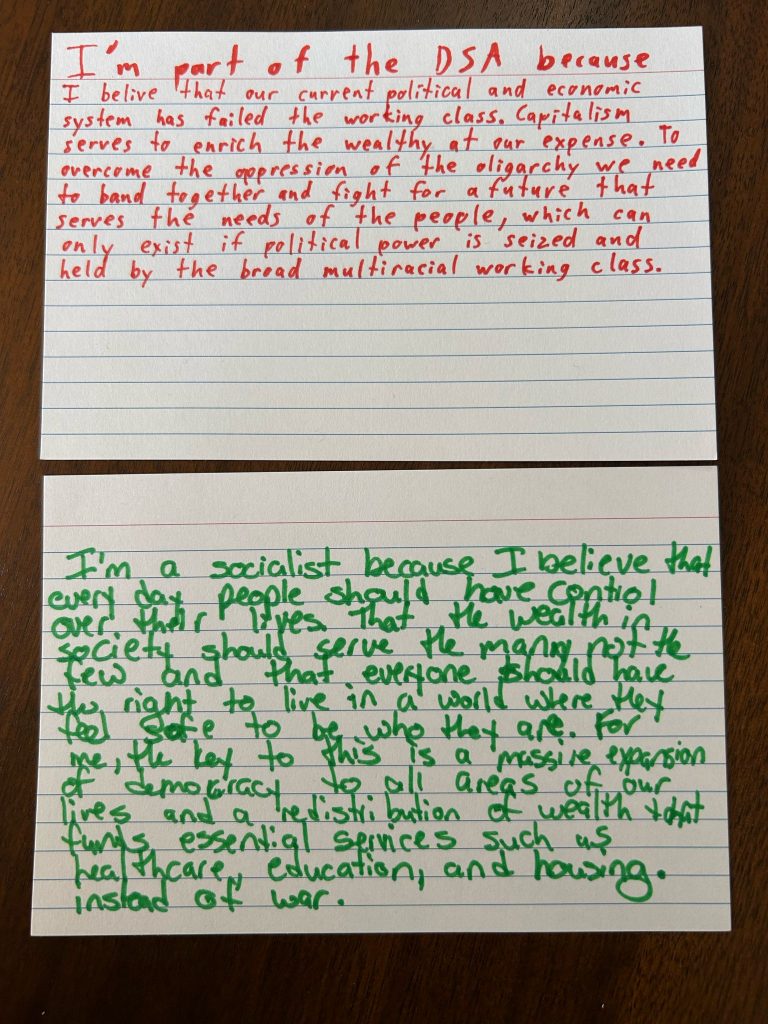 I'm part of the DSA because
I belive that our current political and economic
system has failed the working class. Capitalism
serves to enrich the wealthy at our expense. To
overcome the oppression of the oligarchy we need
to band together and fight for a future that
serves the needs of the people, which can
only exist if political power is seized and
held by the broad multiracial working class.
I'm a socialist because I believe that
every day people should have control
over their lives. That the wealth in
society should serve the many not the
few and that everyone should have
the right to live in a world where they
feel safe to be who they are. For
me, the key to this is a massive expansion
of democracy to all areas of our
lives and a redistribution of wealth that
funds essential services such as
healthcare, education, and housing.
instead of war.